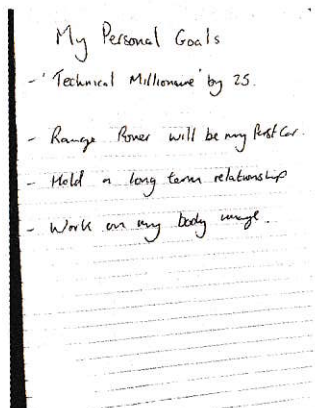 My Personal Goals
- 'Technical Millionaire' by 25.
- Range Rover will be my first Car.
- Hold a long term relationship
- Work on my body image.